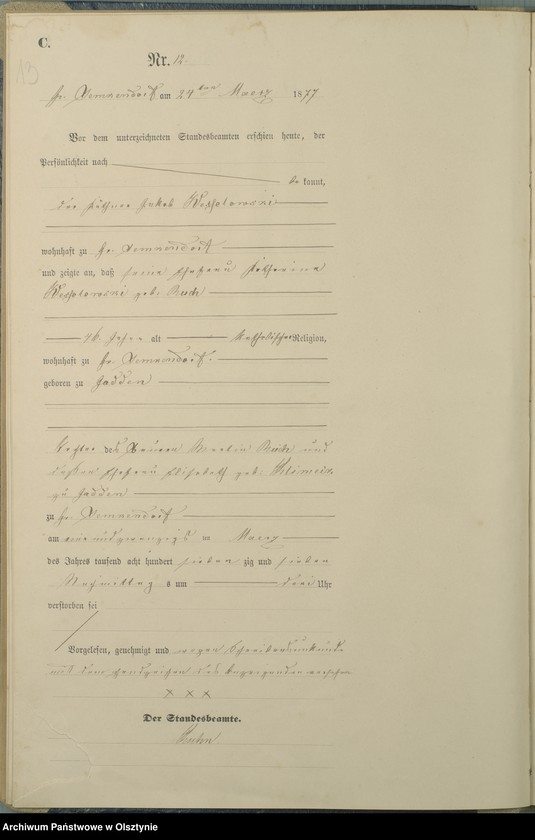 C.
13
Nr. 12.
am 24 ten Maerz 1877
Vor dem unterzeichneten Standesbeamten erschien heute, der
Persönlichkeit nach
be kannt,
der Jakob
wohnhaft zu Gr.
und zeigte an, daß seine Ehefrau Katharina
geb. Buch
46 Jahre alt katholischer Religion,
wohnhaft zu Gr.
geboren zu Jadden
Tochter des Bauern Martin Buch und
dessen Ehefrau Elisabeth geb.
zu Jadden
zu Gr.
am vierundzwanzigsten Maerz
des Jahres tausend acht hundert sieben zig und sieben
Nachmittag s um drei Uhr
verstorben sei
Vorgelesen, genehmigt und wegen Schreibensunkunde
mit dem Handzeichen des Anzeigenden versehen
× × ×
Der Standesbeamte.
Archiwum Państwowe w Olsztynie